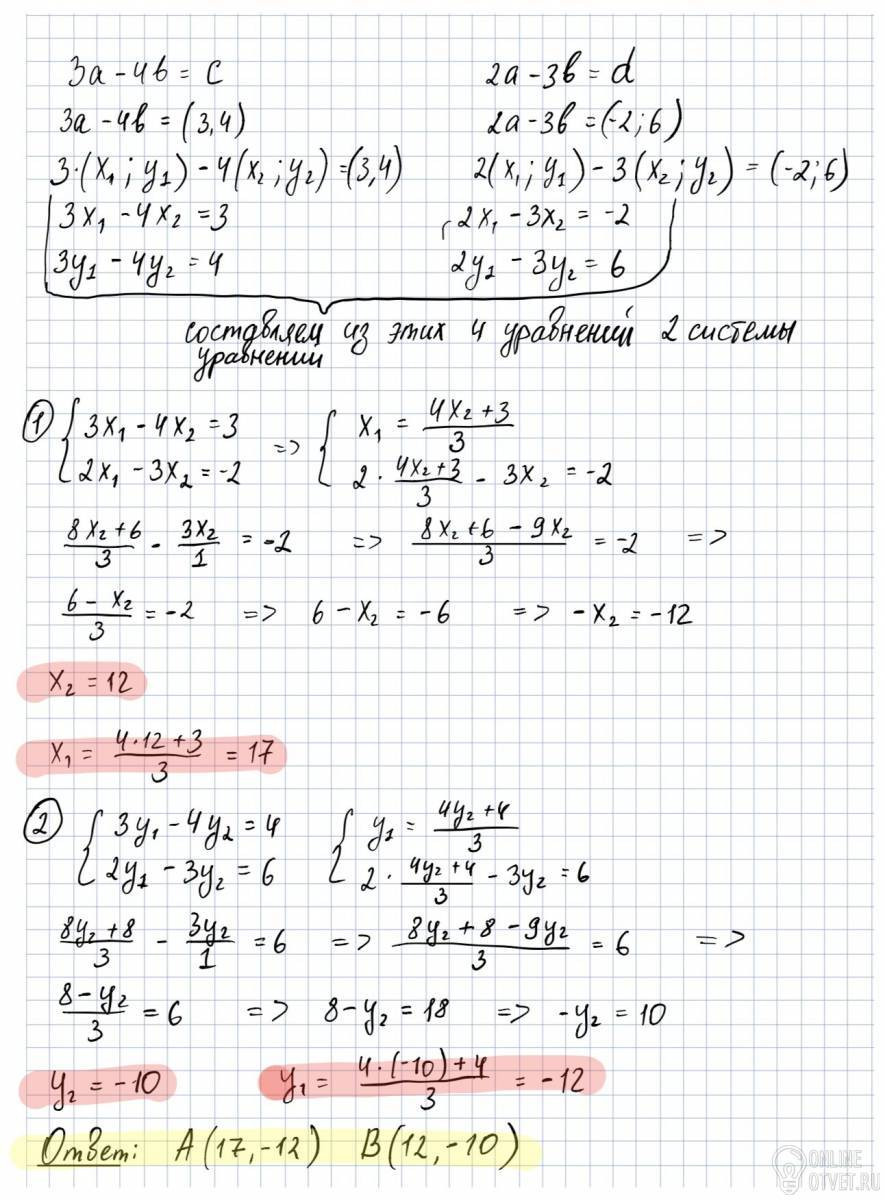 3a - 4b = c
2a - 3b = d
3a - 4b = (3,4)
2a - 3b = (-2;6)
3·(x₁; y₁) - 4(x₂; y₂) = (3,4)
2(x₁; y₁) - 3(x₂; y₂) = (-2;6)
3x₁ - 4x₂ = 3
2x₁ - 3x₂ = -2
3y₁ - 4y₂ = 4
2y₁ - 3y₂ = 6
составляем из этих 4 уравнений 2 системы
уравнении
① { 3x₁ - 4x₂ = 3 => { x₁ = (4x₂ + 3)/3
2x₁ - 3x₂ = -2 2 · (4x₂ + 3)/3 - 3x₂ = -2
(8x₂ + 6)/3 - 3x₂/1 = -2 => (8x₂ + 6 - 9x₂)/3 = -2 =>
(6 - x₂)/3 = -2 => 6 - x₂ = -6 => -x₂ = -12
x₂ = 12
x₁ = (4·12 + 3)/3 = 17
② { 3y₁ - 4y₂ = 4 { y₁ = (4y₂ + 4)/3
2y₁ - 3y₂ = 6 2 · (4y₂ + 4)/3 - 3y₂ = 6
(8y₂ + 8)/3 - 3y₂/1 = 6 => (8y₂ + 8 - 9y₂)/3 = 6 =>
(8 - y₂)/3 = 6 => 8 - y₂ = 18 => -y₂ = 10
y₂ = -10 y₁ = (4·(-10) + 4)/3 = -12
Ответ: A(17,-12) B(12,-10)
ONLINE
OTVET.RU